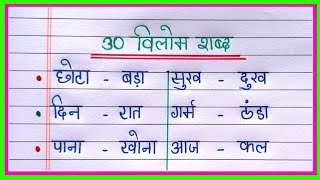 30 विलोम शब्द
• छोटा - बड़ा सुख - दुख
• दिन - रात गर्म - ठंडा
• पाना - खोना आज - कल